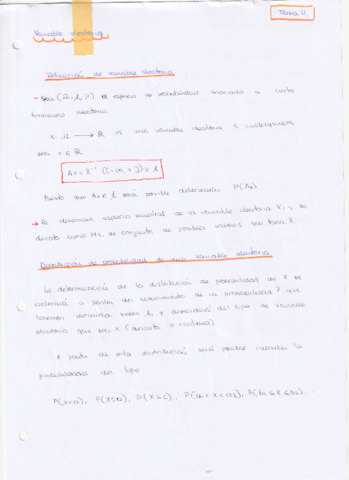 Tema 4.
Variable aleatoria
Definición de variable aleatoria
→ Sea (Ω, A, P) el espacio de probabilidad asociado a cierto
fenómeno aleatorio.
X: Ω → ℝ es una variable aleatoria si cualesquiera
sea x ∈ ℝ
Ax = X⁻¹ ((-∞, x]) ∈ A
Puesto que Ax ∈ A será posible determinar P(Ax)
→ Se denomina espacio muestral de la variable aleatoria X, y se
denota como Mx, al conjunto de posibles valores que toma X.
Distribución de probabilidad de una variable aleatoria
La determinación de la distribución de probabilidad de X se
realizará a partir del conocimiento de la probabilidad P que
tenemos definida sobre A y dependerá del tipo de variable
aleatoria que sea X (discreta o continua)
A partir de esta distribución será posible calcular
probabilidades del tipo